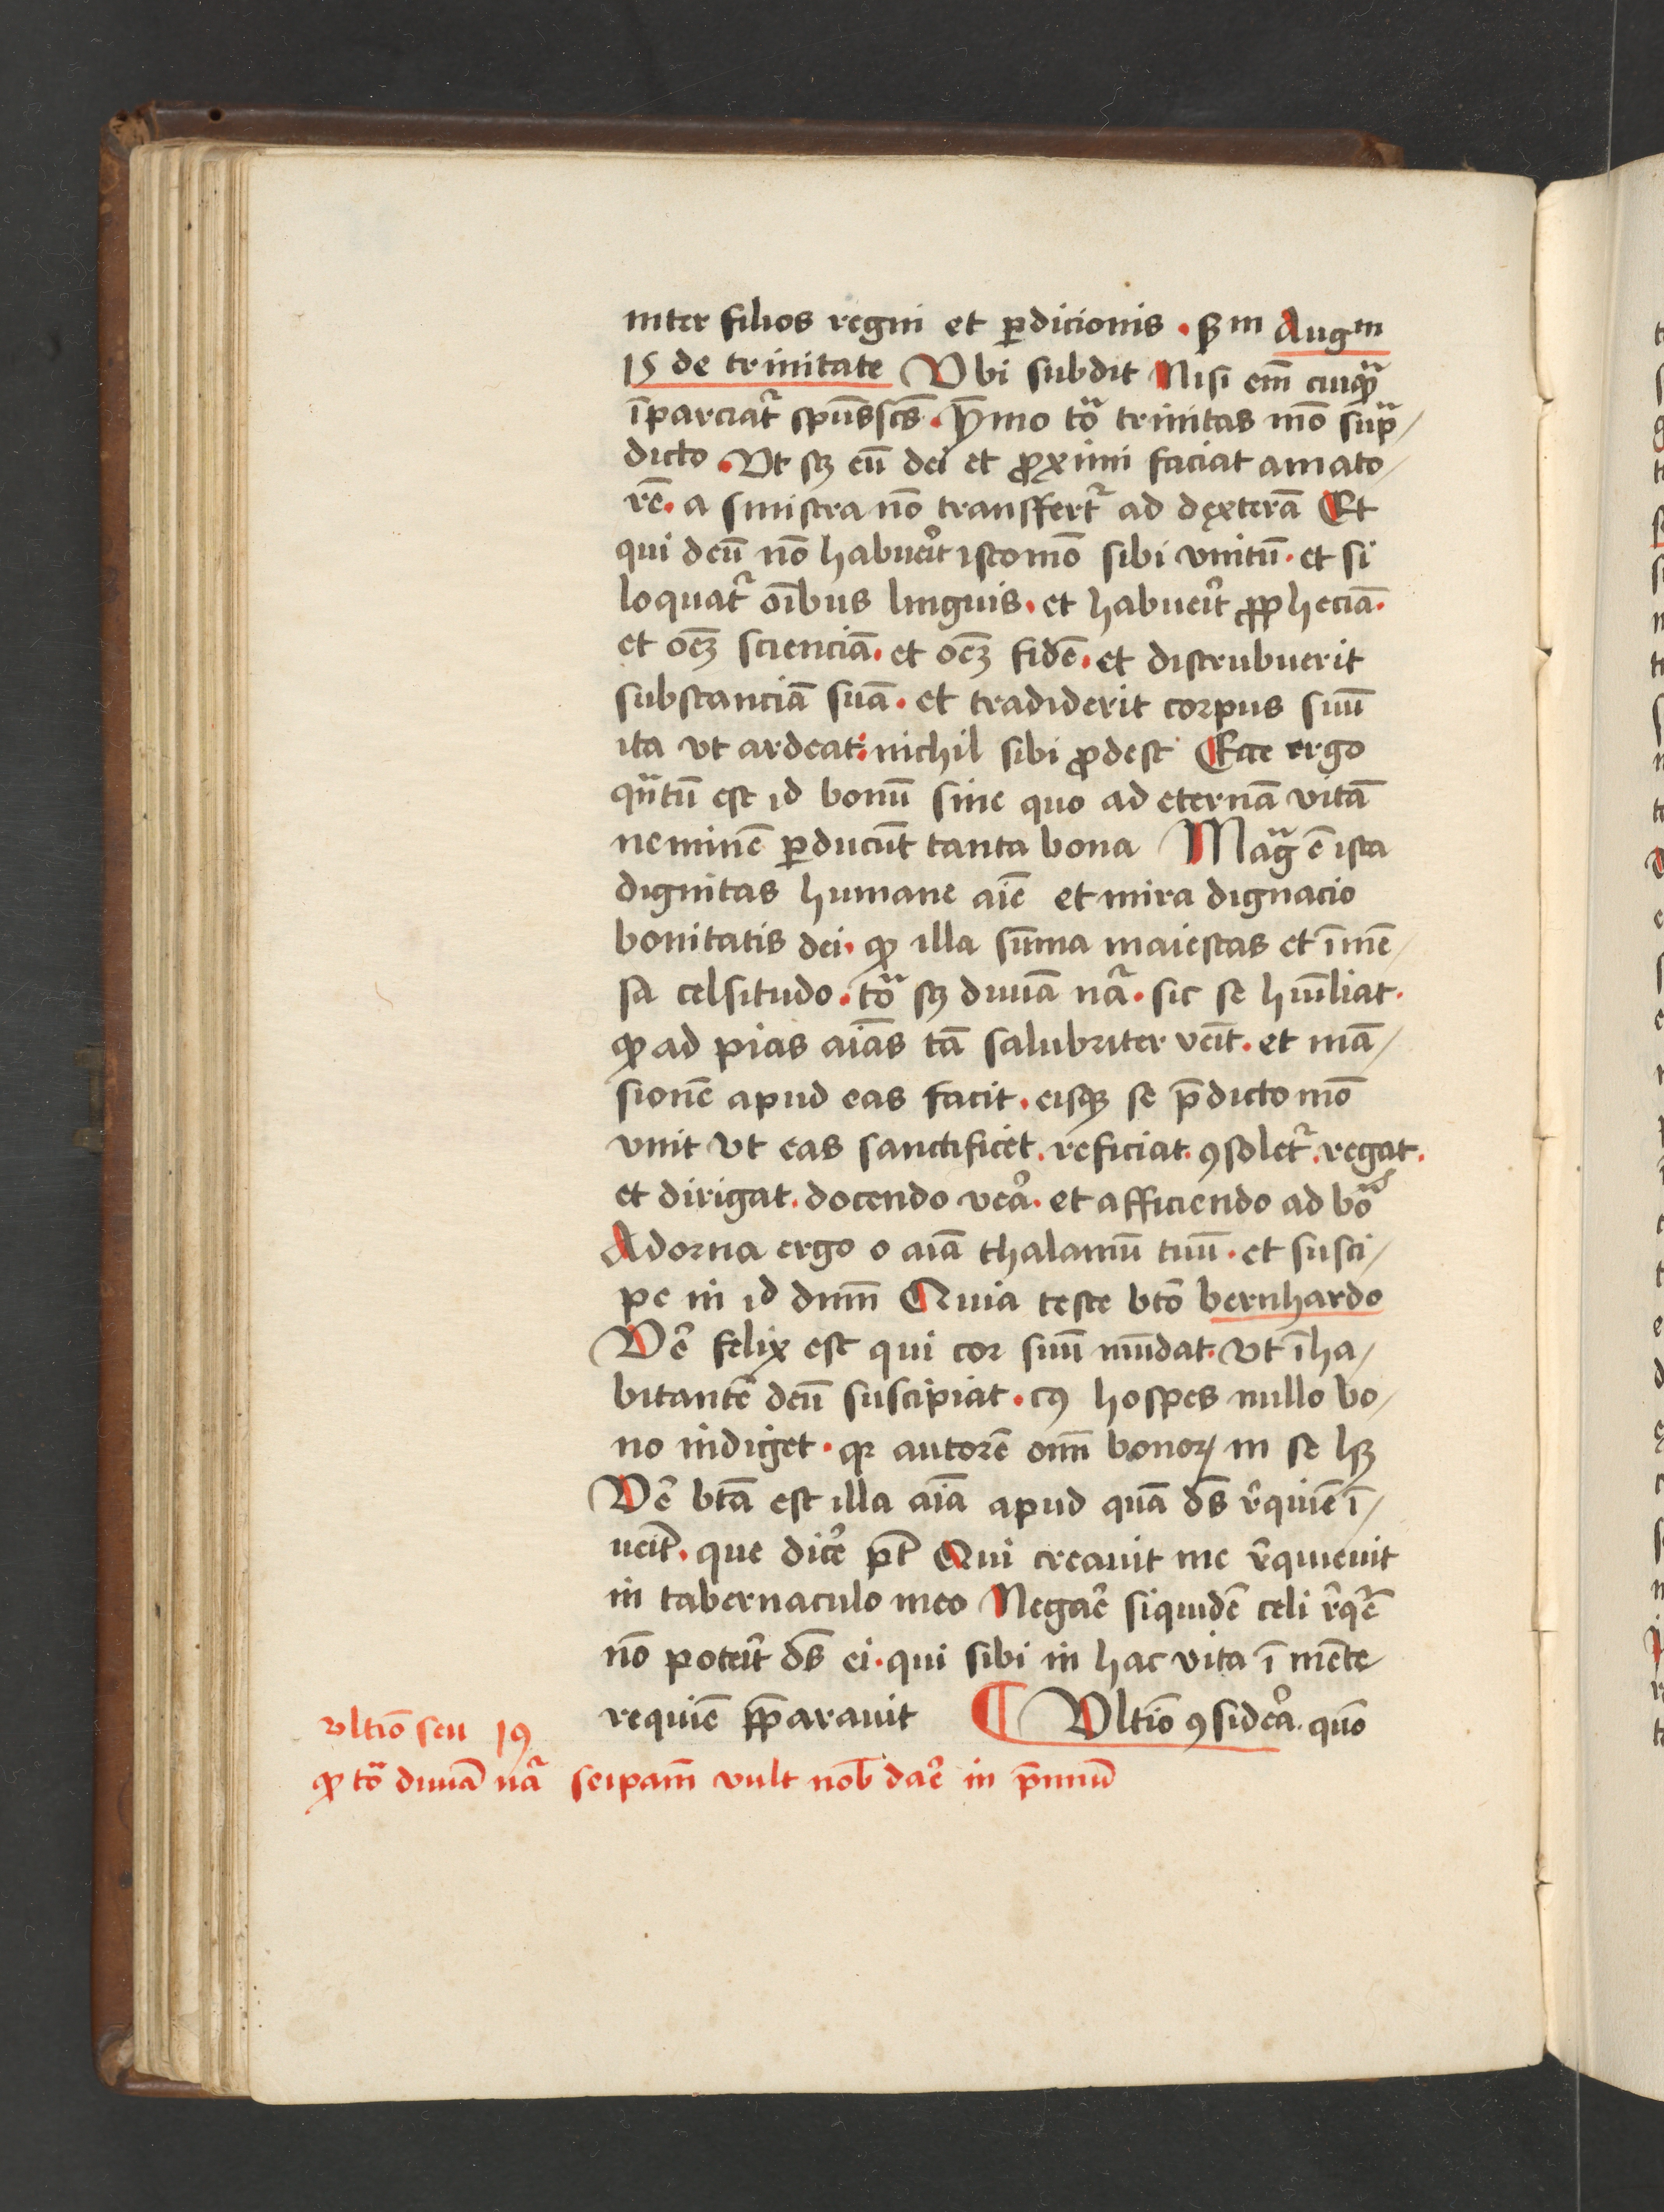 inter filios regni et ꝑdicionis · ẜm Augm
15 de trinitate Ubi subdit Nisi em̄ cuiqꝫ
īparciat᷑ spūssc̄s · ymmo tōa trinitas mō supra⸗
dicto · Vt sꝫ eū dei et ꝓximi faciat amato⸗
rē · a sinistra nō transffert᷑ ad dexterā Et
qui deū nō habuer̄it istomō sibi vnitū · et si
loquat᷑ oībus linguis · et habuer̄it ꝓpheciā ·
et oēꝫ scienciā · et oēꝫ fidē · et distrubuerit
substanciā suā · et tradiderit corpus suū
ita vt ardeat : nichil sibi ꝓdest Ecce ergo
qn̄tū est id bonū sine quo ad eternā vitā
neminē ꝑducūt tanta bona Mag̃ ē ista
dignitas humane aīe et mira dignacio
bonitatis dei · ꝙ illa sūma maiestas et īmē⸗
sa celsitudo · tōa sꝫ diuīa nā᷑ · sic se hūīliat ·
ꝙ ad pias aīas tā salubriter veīt · et mā⸗
sionē apud eas facit · eisqꝫ se p̄dicto mō
vnit vt eas sanctificet · reficiat · ꝯsolet᷑ · regat ·
et dirigat · docendo vēa᷑ · et afficiendo ad bōa
Adorna ergo o aīa thalamū tuū · et susci⸗
pe in id dnm̄ Quia teste btō bernhardo
Ve᷑ felix est qui cor suū mūdat · vt īha⸗
bitantē deū suscipiat · cꝰ hospes nullo bo⸗
no indiget · qꝛ autorē om̄ bonoꝝ in se hꝫ
Ve᷑ btā est illa aīa apud quā ds̄ r᷑quiē ī⸗
ueīt · que dicē᷑ pt̄ Qui creauit me r᷑quieuit
in tabernaculo meo Negar̄e siquidē celi r᷑qē᷑
nō poter̄it ds̄ ei · qui sibi in hac vita ī mēte
requiē p̄parauit ¶ Vltiō ꝯsidēa᷑ · quō
vltiō seu 19
ꝙ tōa diuīa nā᷑ seipam̄ vult nob̄ dar̄e in p̄miū